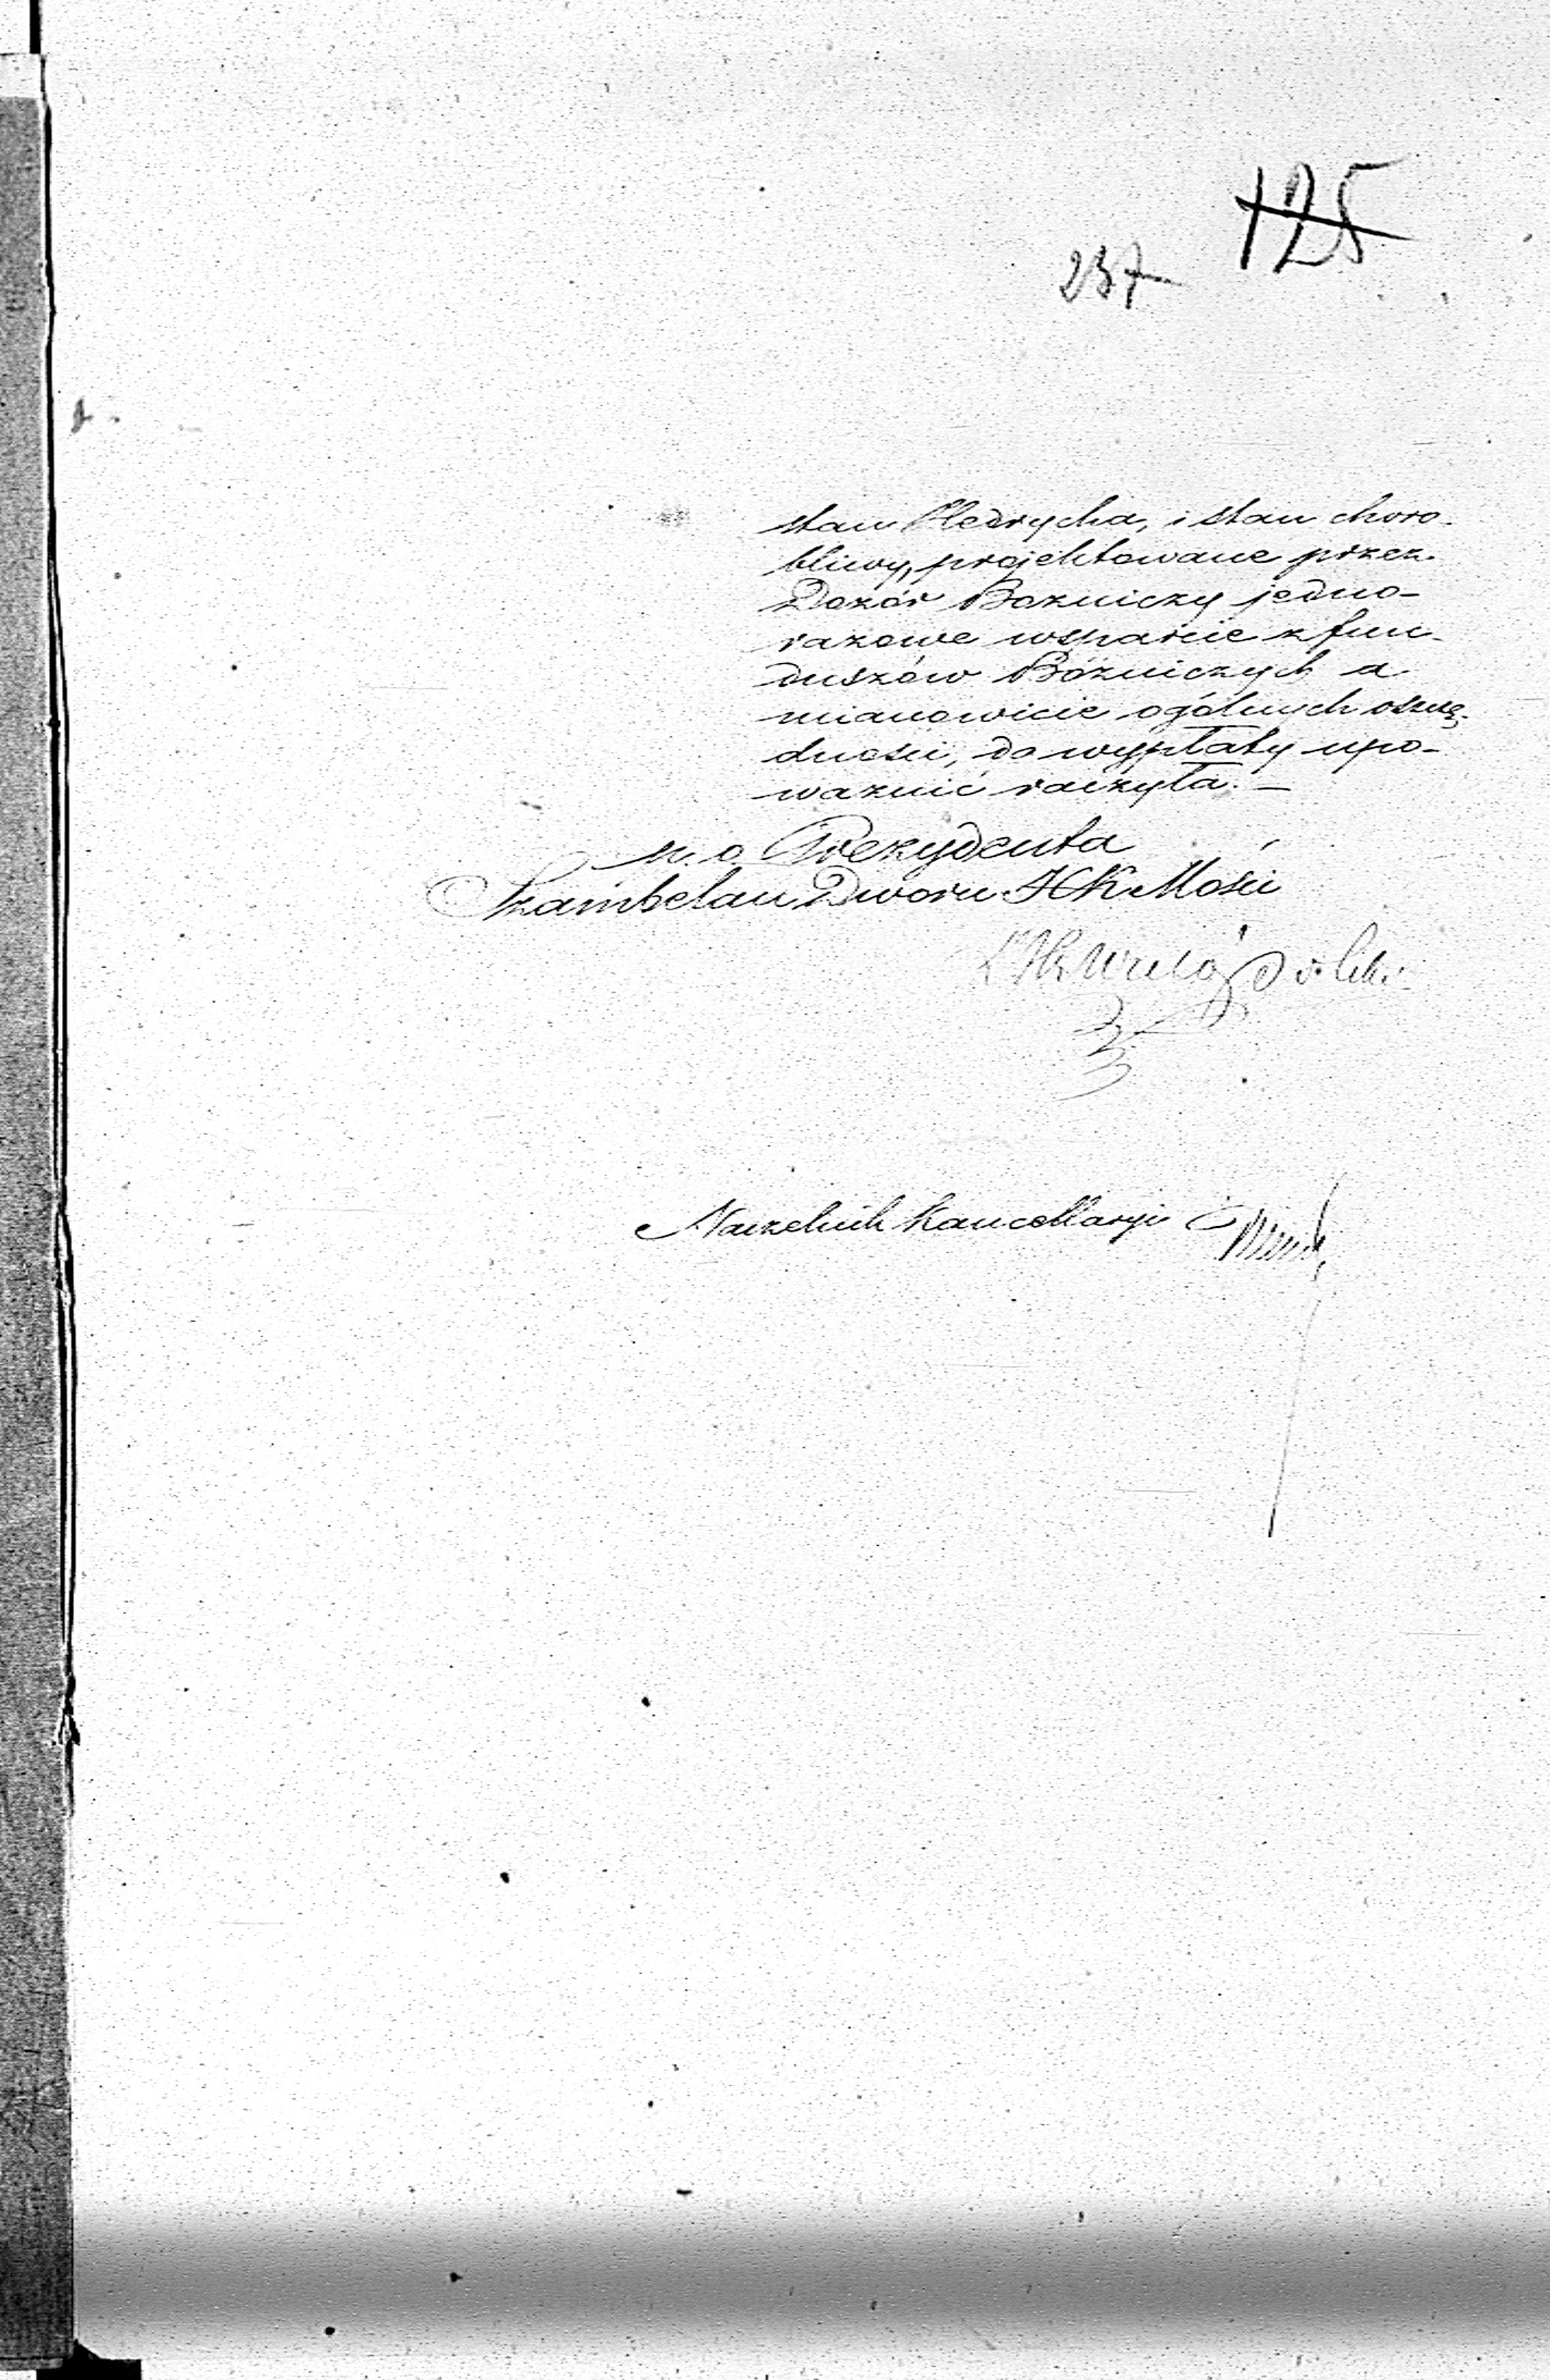 125
237
stan Hedrycha, i stan choro-
bliwy, projektowane przez
Dozór Bożniczy jedno-
razowe wsparcie z fun-
duszów Bóżniczych a
mianowicie ogólnych oszczę-
dności, do wypłaty upo-
ważnić raczyła. —
p. o. Prezydenta
Szambelan Dworu JCK Mości
Wielopolski
Naczelnik Kancellaryi